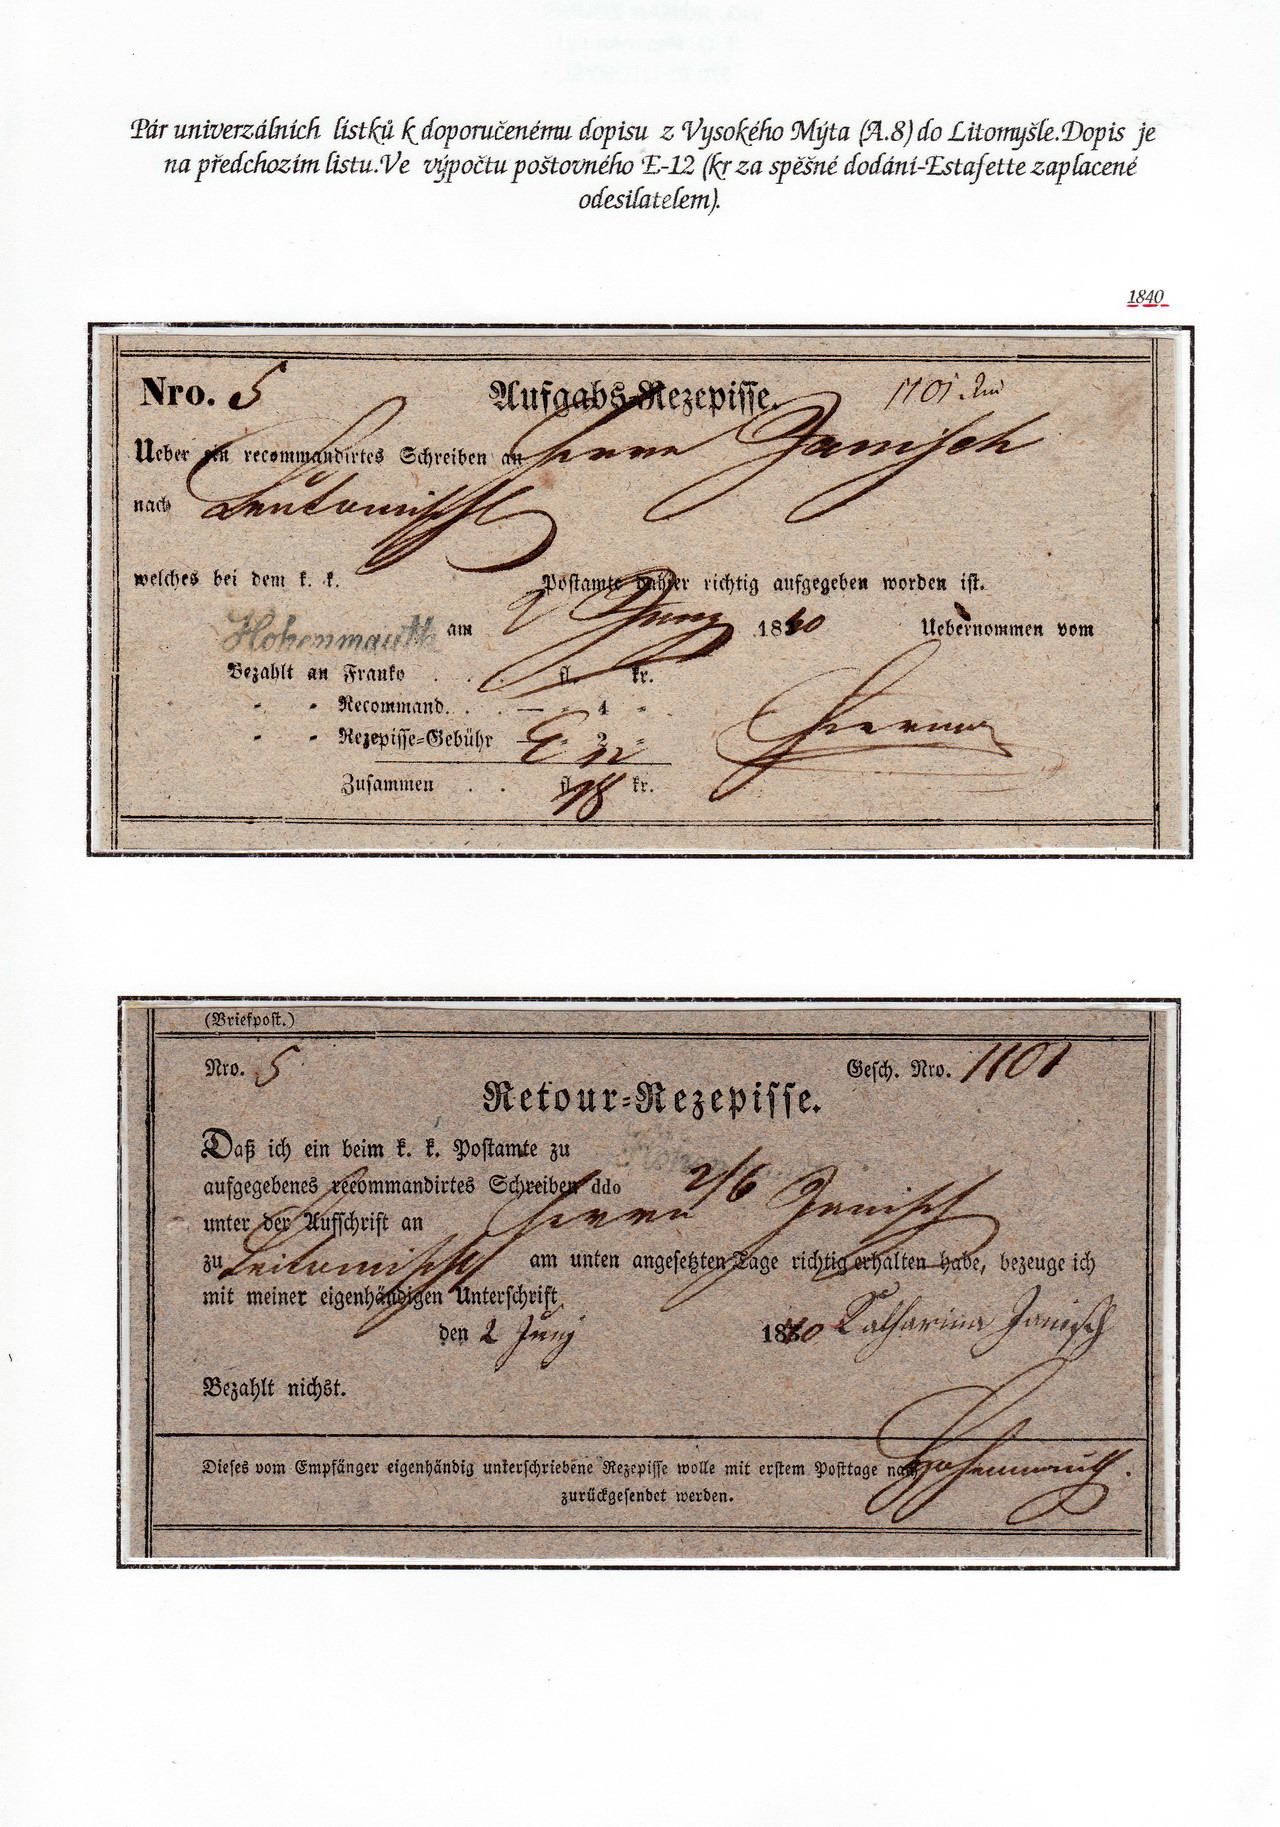 Pár univerzálních lístků k doporučenému dopisu z Vysokého Mýta (A.8) do Litomyšle.Dopis je
na předchozím listu.Ve výpočtu poštovného E-12 (kr za spěšné dodání-Estafette zaplacené
odesilatelem).
1840
Nro. 5 Aufgabs-Rezepisse. 1101
Ueber ein recommandirtes Schreiben an Herrn Janisch
nach Leutomischl
welches bei dem k. k. Postamte dahier richtig aufgegeben worden ist.
Hohenmauth am 2 Juny 1840 Uebernommen vom
Bezahlt an Franko . . . fl. kr.
" " Recommand. . . — " 4 "
" " Rezepisse-Gebühr — " 2 "
E 12
Zusammen . . fl. 18 kr.
(Briefpost.)
Nro. 5 Gesch. Nro. 1101
Retour-Rezepisse.
Daß ich ein beim k. k. Postamte zu
aufgegebenes recommandirtes Schreiben ddo 2/6
unter der Aufschrift an Herrn Janisch
zu Leitomischl am unten angesetzten Tage richtig erhalten habe, bezeuge ich
mit meiner eigenhändigen Unterschrift.
den 2 Juny 1840 Katharina Janisch
Bezahlt nichst.
Dieses vom Empfänger eigenhändig unterschriebene Rezepisse wolle mit erstem Posttage nach Hohenmauth.
zurückgesendet werden.